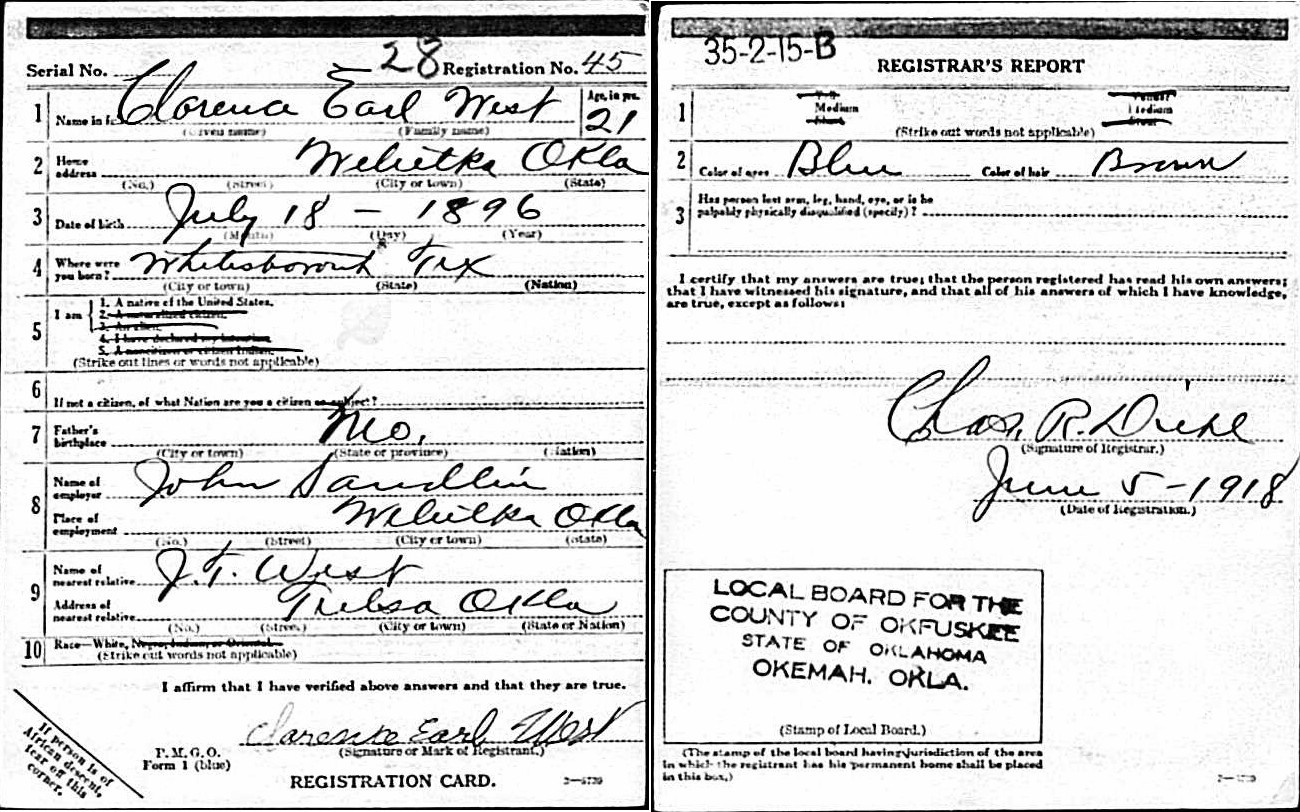 Serial No. 28 Registration No. 45
1 Name in Clarence Earl West Age, in yrs. 21
(Given name) (Family name)
2 Home address Weleetka Okla
(No.) (Street) (City or town) (State)
3 Date of birth July 18 - 1896
(Month) (Day) (Year)
4 Where were you born? Whitesborough Tex
(City or town) (State) (Nation)
5 I am
1. A native of the United States.
2. A naturalized citizen.
3. An alien.
4. I have declared my intention.
5. A noncitizen or citizen Indian.
(Strike out lines or words not applicable)
6 If not a citizen, of what Nation are you a citizen or subject?
7 Father's birthplace Mo.
(City or town) (State or province) (Nation)
8 Name of employer John Sandlin
Place of employment Weleetka Okla
(No.) (Street) (City or town) (State)
9 Name of nearest relative J.T. West
Address of nearest relative Tulsa Okla
(No.) (Street) (City or town) (State or Nation)
10 Race—White, Negro, Indian, or Oriental
(Strike out words not applicable)
I affirm that I have verified above answers and that they are true.
Clarence Earl West
(Signature or Mark of Registrant.)
P. M. G. O.
Form 1 (blue)
REGISTRATION CARD.
If person is of
African descent,
tear off this
corner.
35-2-15-B
REGISTRAR'S REPORT
1 Medium Medium
(Strike out words not applicable)
2 Color of eyes Blue Color of hair Brown
3 Has person lost arm, leg, hand, eye, or is he
palpably physically disqualified (specify)?
I certify that my answers are true; that the person registered has read his own answers;
that I have witnessed his signature, and that all of his answers of which I have knowledge,
are true, except as follows:
Chas. R. Diehl
(Signature of Registrar.)
June 5 - 1918
(Date of Registration.)
LOCAL BOARD FOR THE
COUNTY OF OKFUSKEE
STATE OF OKLAHOMA
OKEMAH, OKLA.
(Stamp of Local Board.)
(The stamp of the local board having jurisdiction of the area
in which the registrant has his permanent home shall be placed
in this box.)